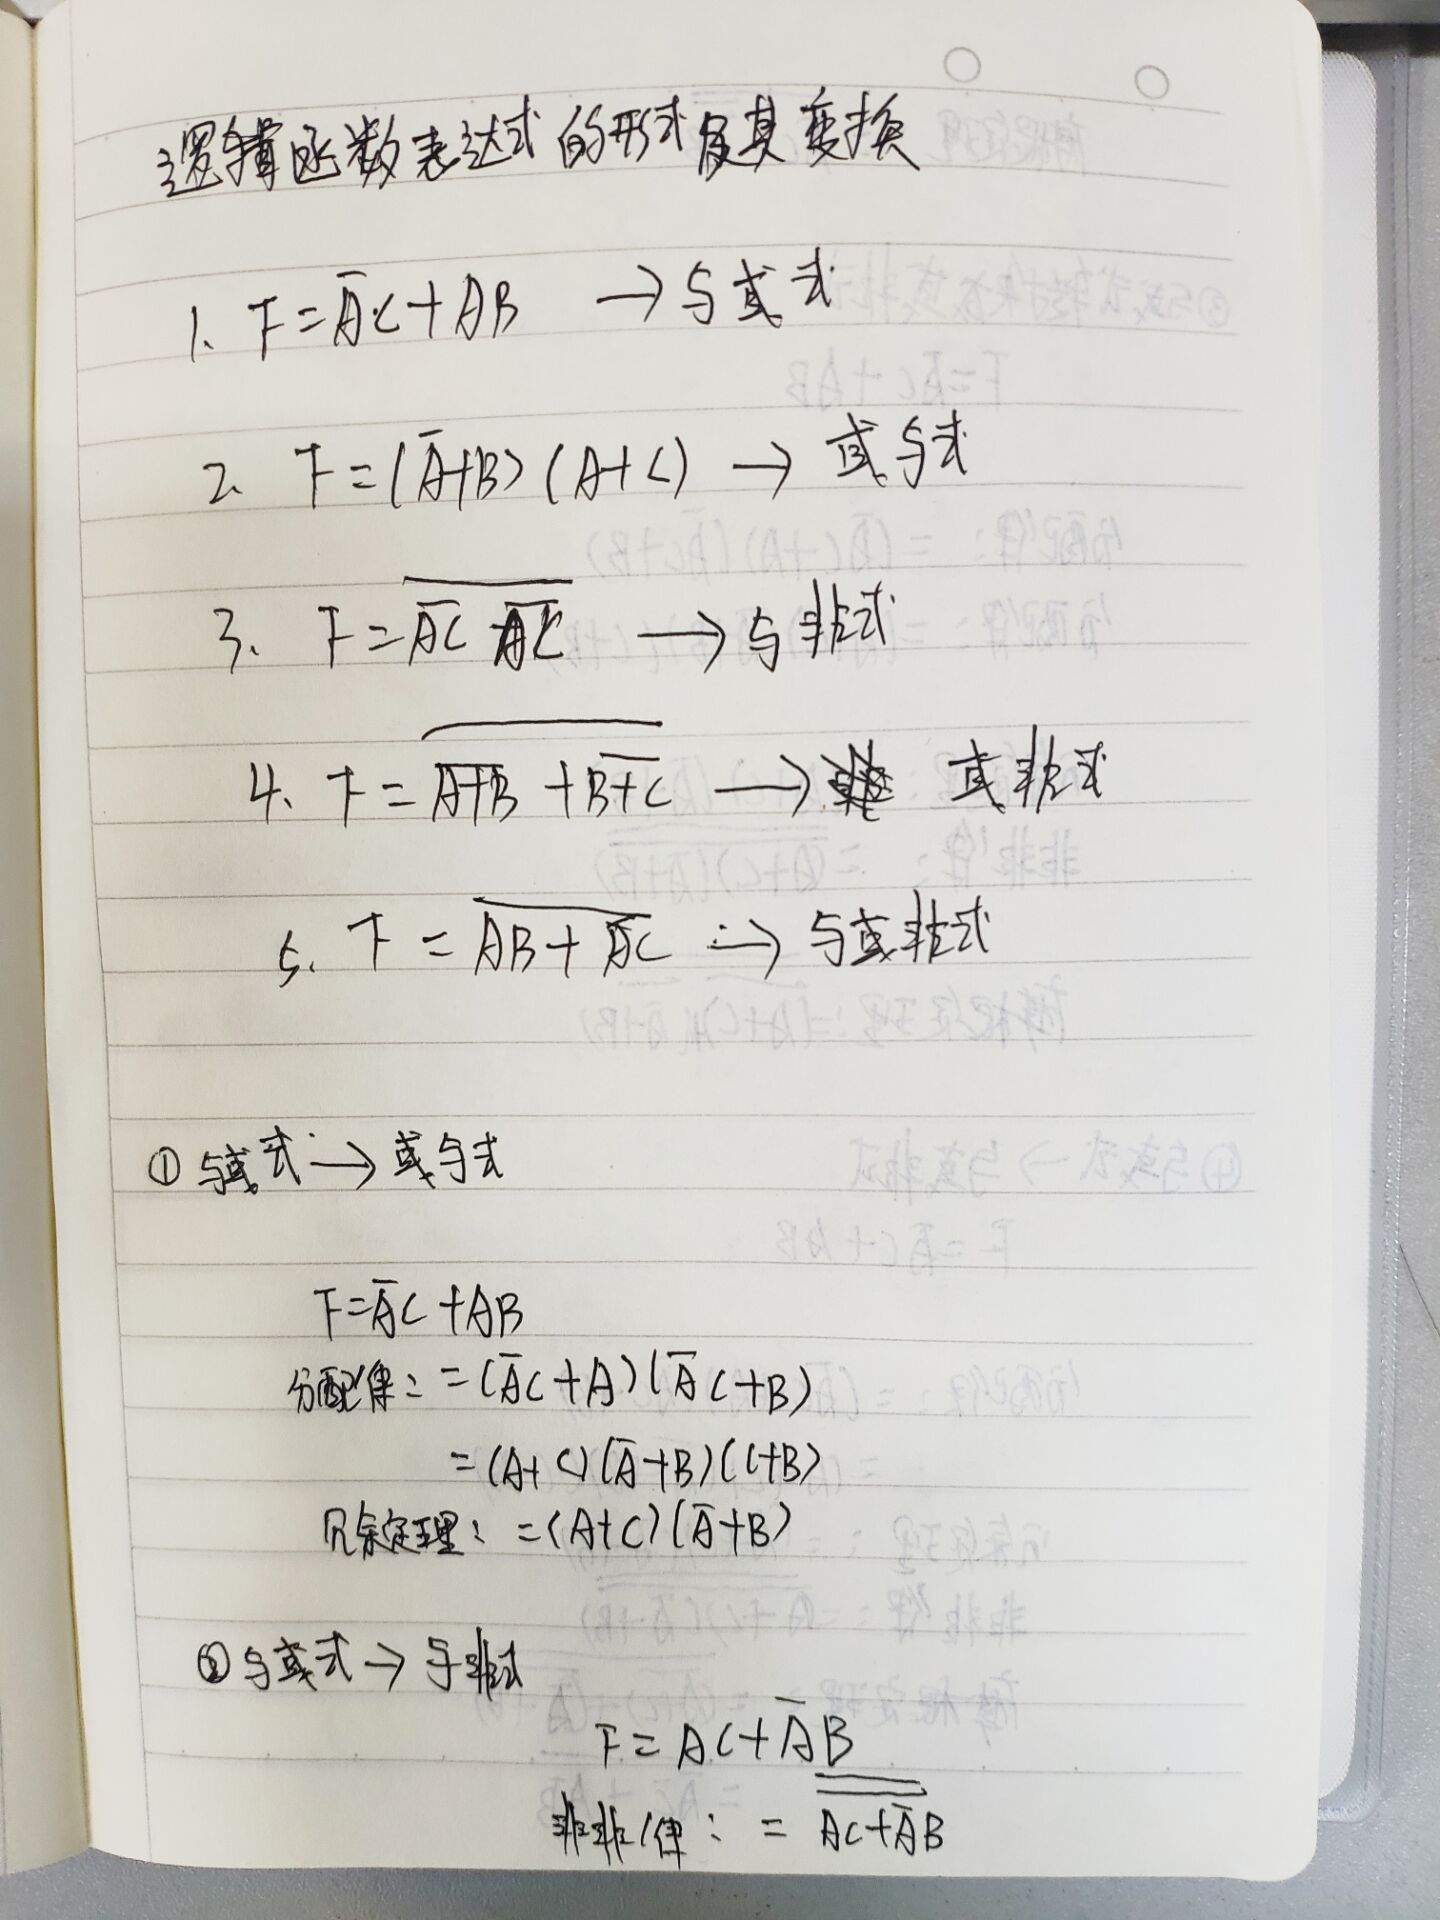 逻辑函数表达式的形式及其变换
1. F=A̅C+AB →与或式
2. F=(A̅+B)(A+C) → 或与式
3. F= →与非式
4. F= → 或非式
5. F= → 与或非式
① 与或式 → 或与式
F=A̅C+AB
分配律: =(A̅C+A)(A̅C+B)
=(A+C)(A̅+B)(C+B)
冗余定理: =(A+C)(A̅+B)
② 与或式 → 与非式
F=AC+A̅B
非非律: = A̿C̿+̿A̿̅B̿